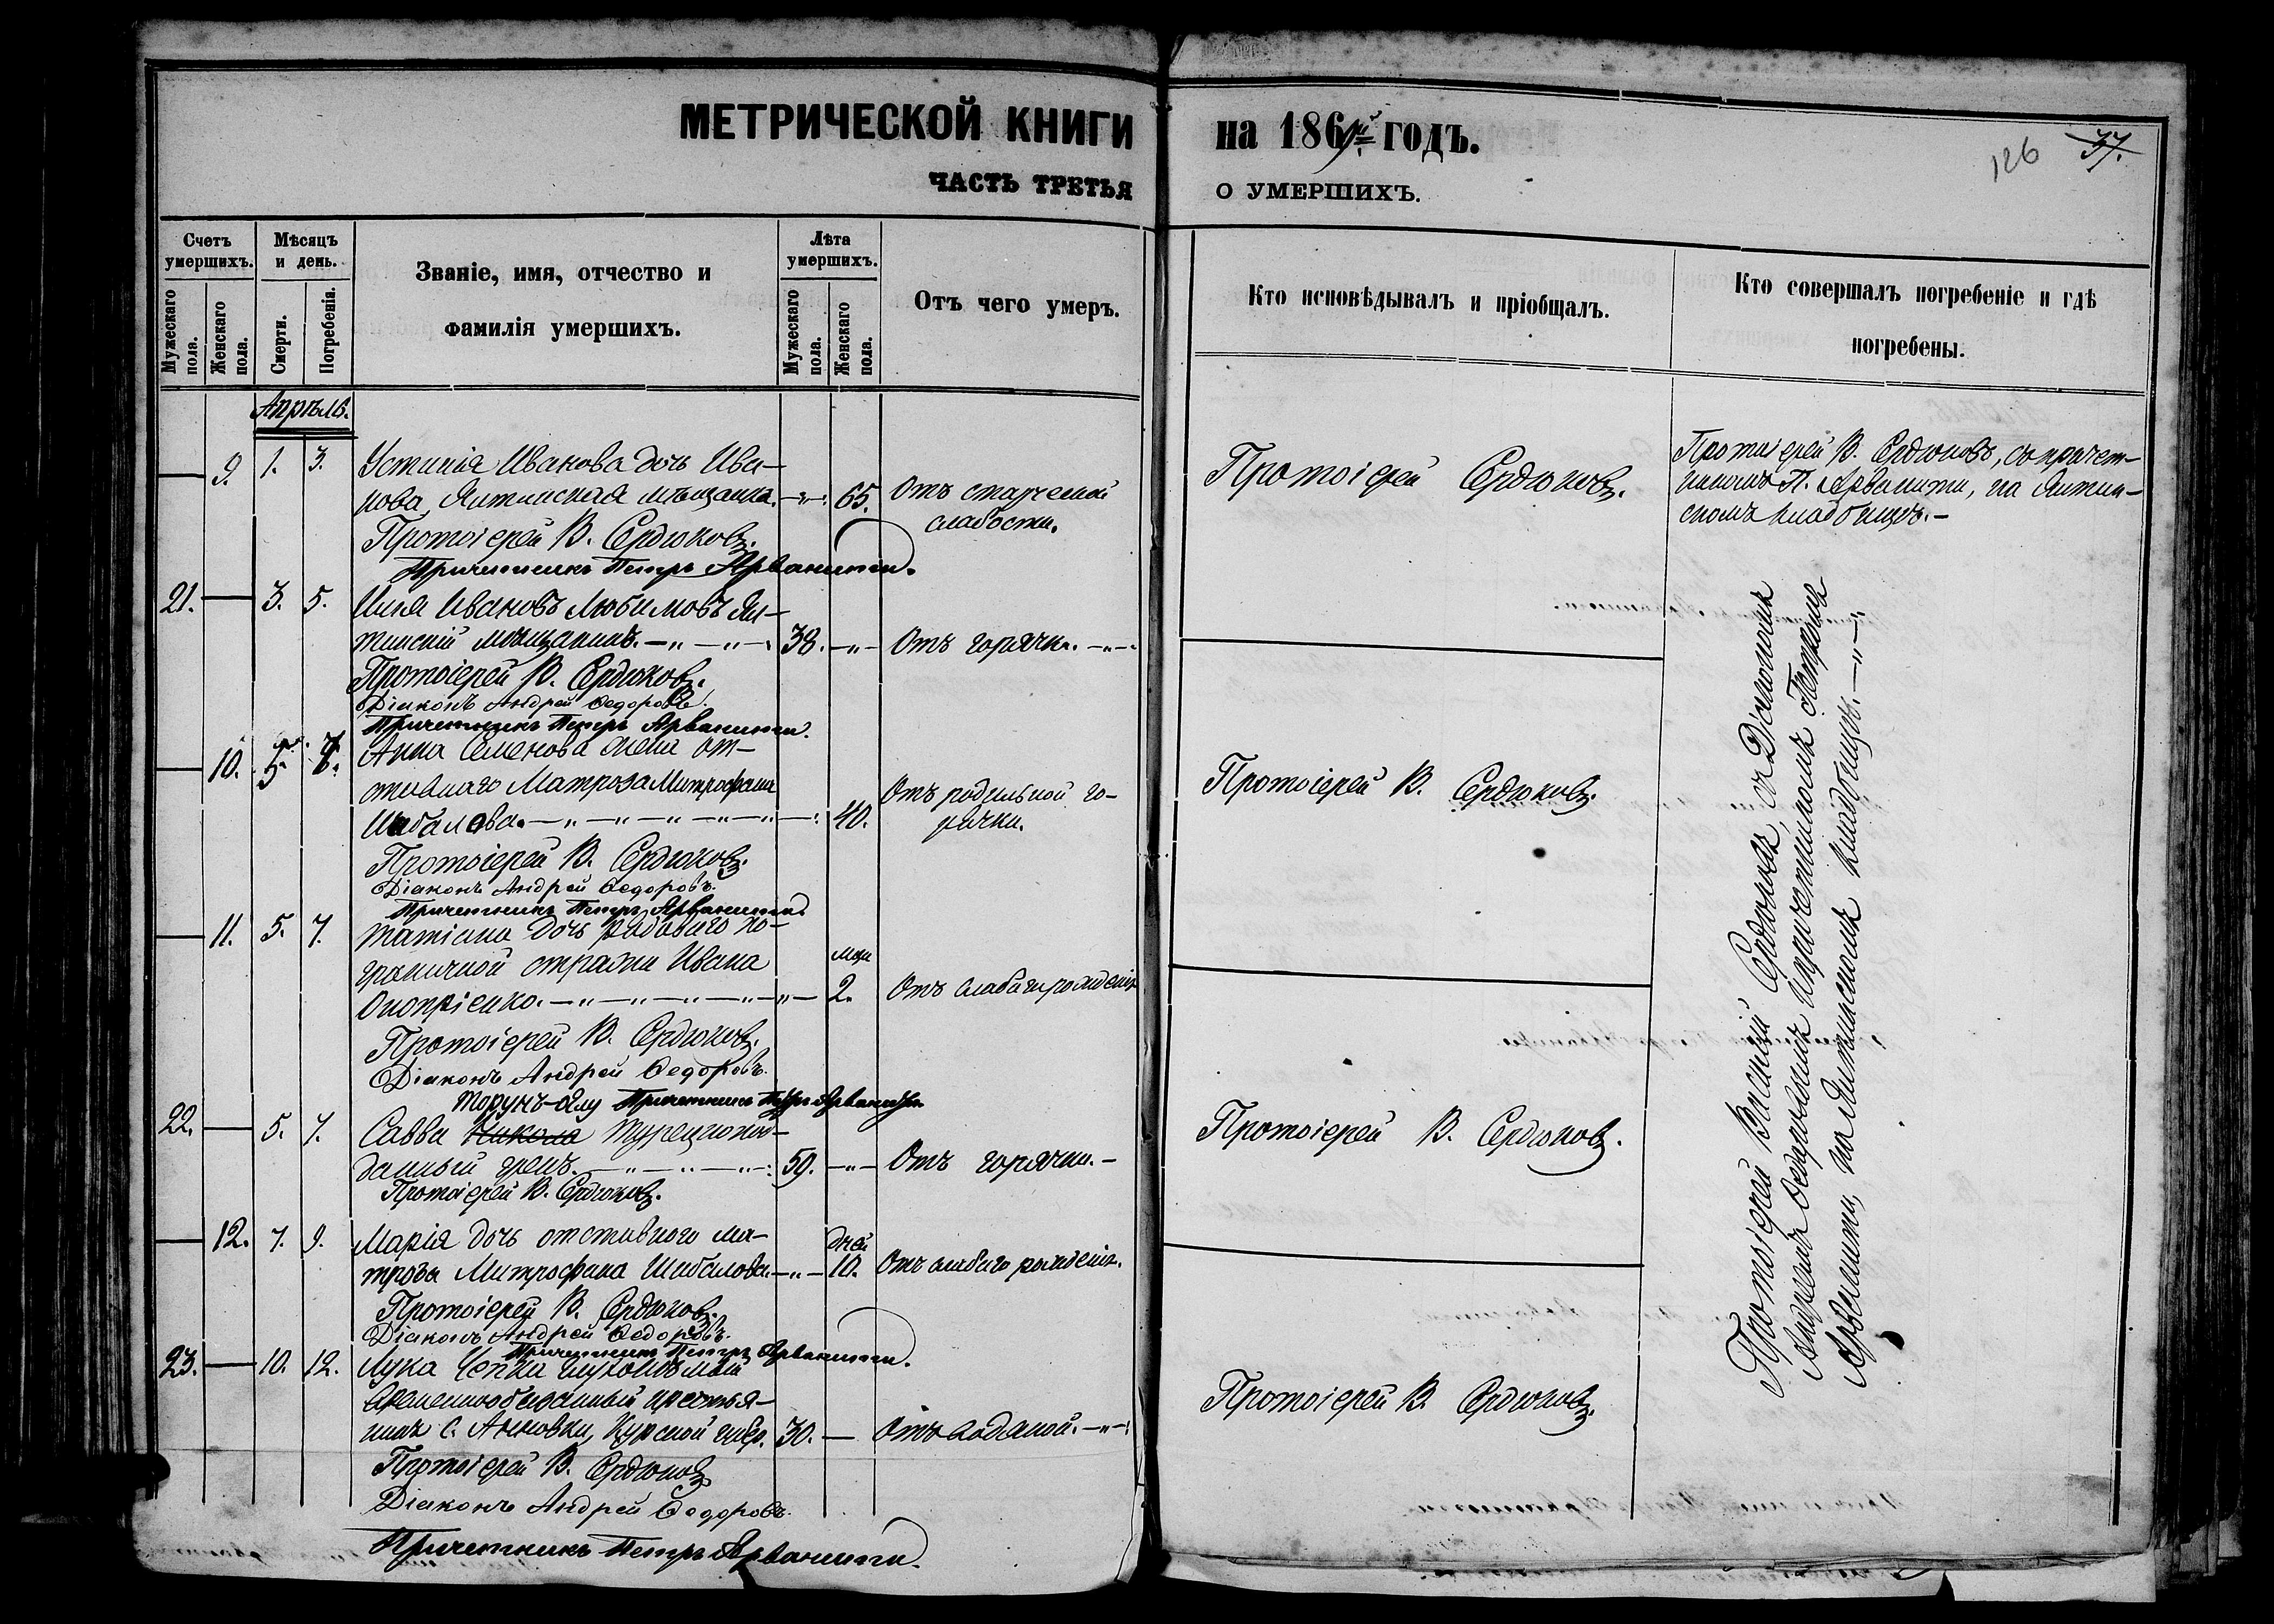 МЕТРИЧЕСКОЙ КНИГИ
ЧАСТЬ ТРЕТЬЯ
Счетъ умершихъ.
Мужескаго пола.
Женскаго пола.
Мѣсяцъ и день.
Смерти.
Погребенія.
Званіе, имя, отчество и
фамилія умершихъ.
Лѣта умершихъ.
Мужескаго пола.
Женскаго пола.
Отъ чего умеръ.
Апрѣль.
— 9. 1. 3. Устинія Иванова дочь Ива-
нова, Ялтинская мѣщанка. —"— 65. Отъ старческой
слабости.
Протоіерей В. Сердюковъ.
Причетникъ Петръ Арванити.
21. — 3. 5. Илья Ивановъ Любимовъ Ял-
тинскій мѣщанинъ. —"— —"—. 38. —"— Отъ горячки. —"—.
Протоіерей В. Сердюковъ.
Діаконъ Андрей Ѳедоровъ.
Причетникъ Петръ Арванити.
— 10. 5. Анна Семенова жена от-
ставнаго Матроза Митрофана
Шабалова. —"—"—"—"—"—: 40. Отъ родильной го-
рячки.
Протоіерей В. Сердюковъ.
Діаконъ Андрей Ѳедоровъ.
Причетникъ Петръ Арванити.
— 11. 5. 7. Татіана дочь рядоваго по-
граничной стражи Ивана
Оноприенко. —"—"—"—"—"— 2. Отъ слабаго рожденія
Протоіерей В. Сердюковъ.
Діаконъ Андрей Ѳедоровъ.
Торунъ-Оглу Причетникъ Петръ Арванити
22. — 5. 7. Савва Никола Турецкопод-
данный грекъ. —"—"—"—: 50. —"— Отъ горячки. —
Протоіерей В. Сердюковъ.
— 12. 7. 9. Марія дочь отставного ма-
дней
троза Митрофана Шабалова. —"— 10. Отъ слабаго рожденія.
Протоіерей В. Сердюковъ.
Діаконъ Андрей Ѳедоровъ.
Причетникъ Петръ Арванити.
23. — 10. 12. Лука
Временнообязанный крестья-
нинъ с. Курской губер. 30. — Отъ водяной. —"—:
Протоіерей В. Сердюковъ
Діаконъ Андрей Ѳедоровъ.
Причетникъ Петръ Арванити.
на 1869й годъ.
О УМЕРШИХЪ.
126 37.
Кто исповѣдывалъ и пріобщалъ.
Кто совершалъ погребеніе и гдѣ
погребены.
Протоіерей Сердюковъ.
Протоіерей В. Сердюковъ, съ причет-
никомъ П. Арванити, на Ялтин-
скомъ кладбищѣ. —
Протоіерей В. Сердюковъ.
Протоіерей В. Сердюковъ.
Протоіерей В. Сердюковъ.
Протоіерей Василій Сердюковъ, съ Діакономъ
Андреемъ Ѳедоровымъ и причетникомъ Петромъ
Арванити, на Ялтинскомъ кладбищѣ. —"—: